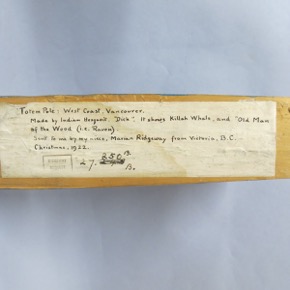 Totem Pole: West Coast, Vancouver.
Made by Indian Hesquiit "Dick". It shows Killah Whale, and "Old Man
of the Wood (i.e. Raven)
Sent to me by my niece, Marian Ridgeway from Victoria, B.C.
Christmas, 1922.
27.
B.